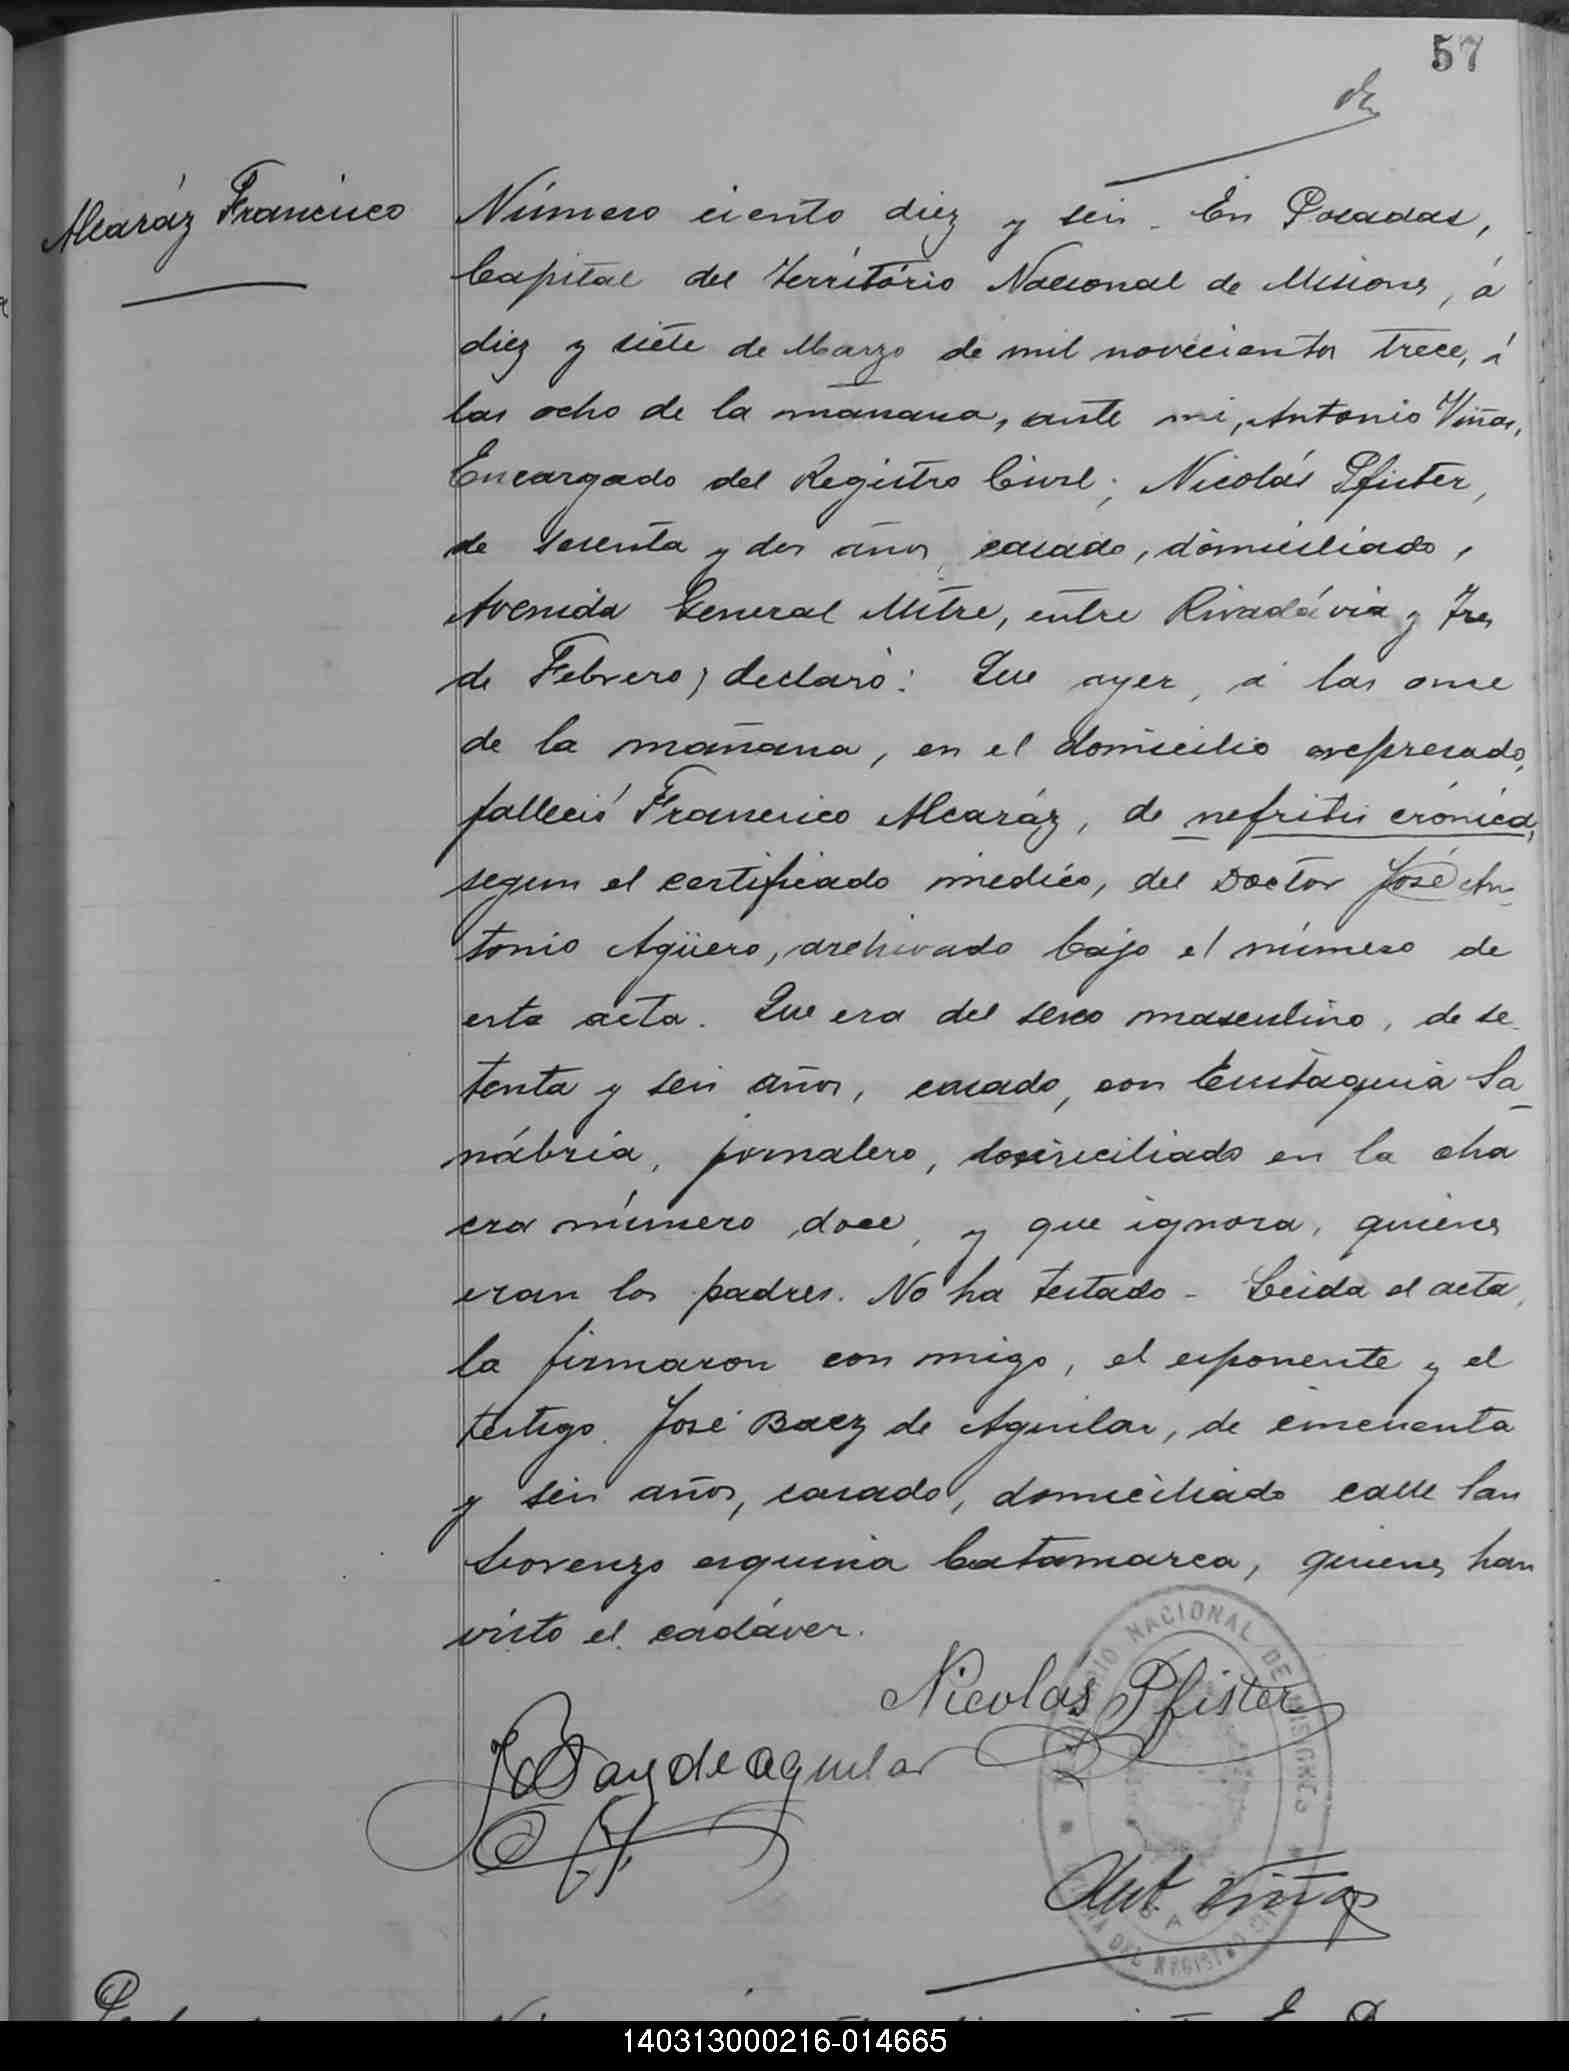 57
Alcaráz Francisco
Número ciento diez y seis. En Posadas,
Capital del Território Nacional de Misiones, á
diez y siete de Marzo de mil novecientos trece, á
las ocho de la mañana, ante mi, Antonio Viñas,
Encargado del Registro Civil; Nicolás Pfister,
de sesenta y dos años, casado, domiciliado,
Avenida General Mitre, entre Rivadávia y Tres
de Febrero; declaró: Que ayer, á las once
de la mañana, en el domicilio expresado,
falleció Francisco Alcaráz, de nefritis crónica,
segun el certificado médico, del Doctor José An-
tonio Agüero, archivado bajo el número de
esta acta. Que era del sexo masculino, de se-
tenta y seis años, casado, con Eustaquia Sa-
nábria, jornalero, domiciliado en la cha
cra número doce, y que ignora, quienes
eran los padres. No ha testado - Leida el acta,
la firmaron con migo, el esponente y el
testigo. José Baez de Aguilar, de cincuenta
y seis años, casado, domiciliado calle San
Lorenzo esquina Catamarca, quienes han
visto el cadáver.
Nicolás Pfister
J Baez de aguilar
TERRITORIO NACIONAL DE MISIONES
Ant. Viñas
DEL REGISTRO CIVIL
140313000216-014665